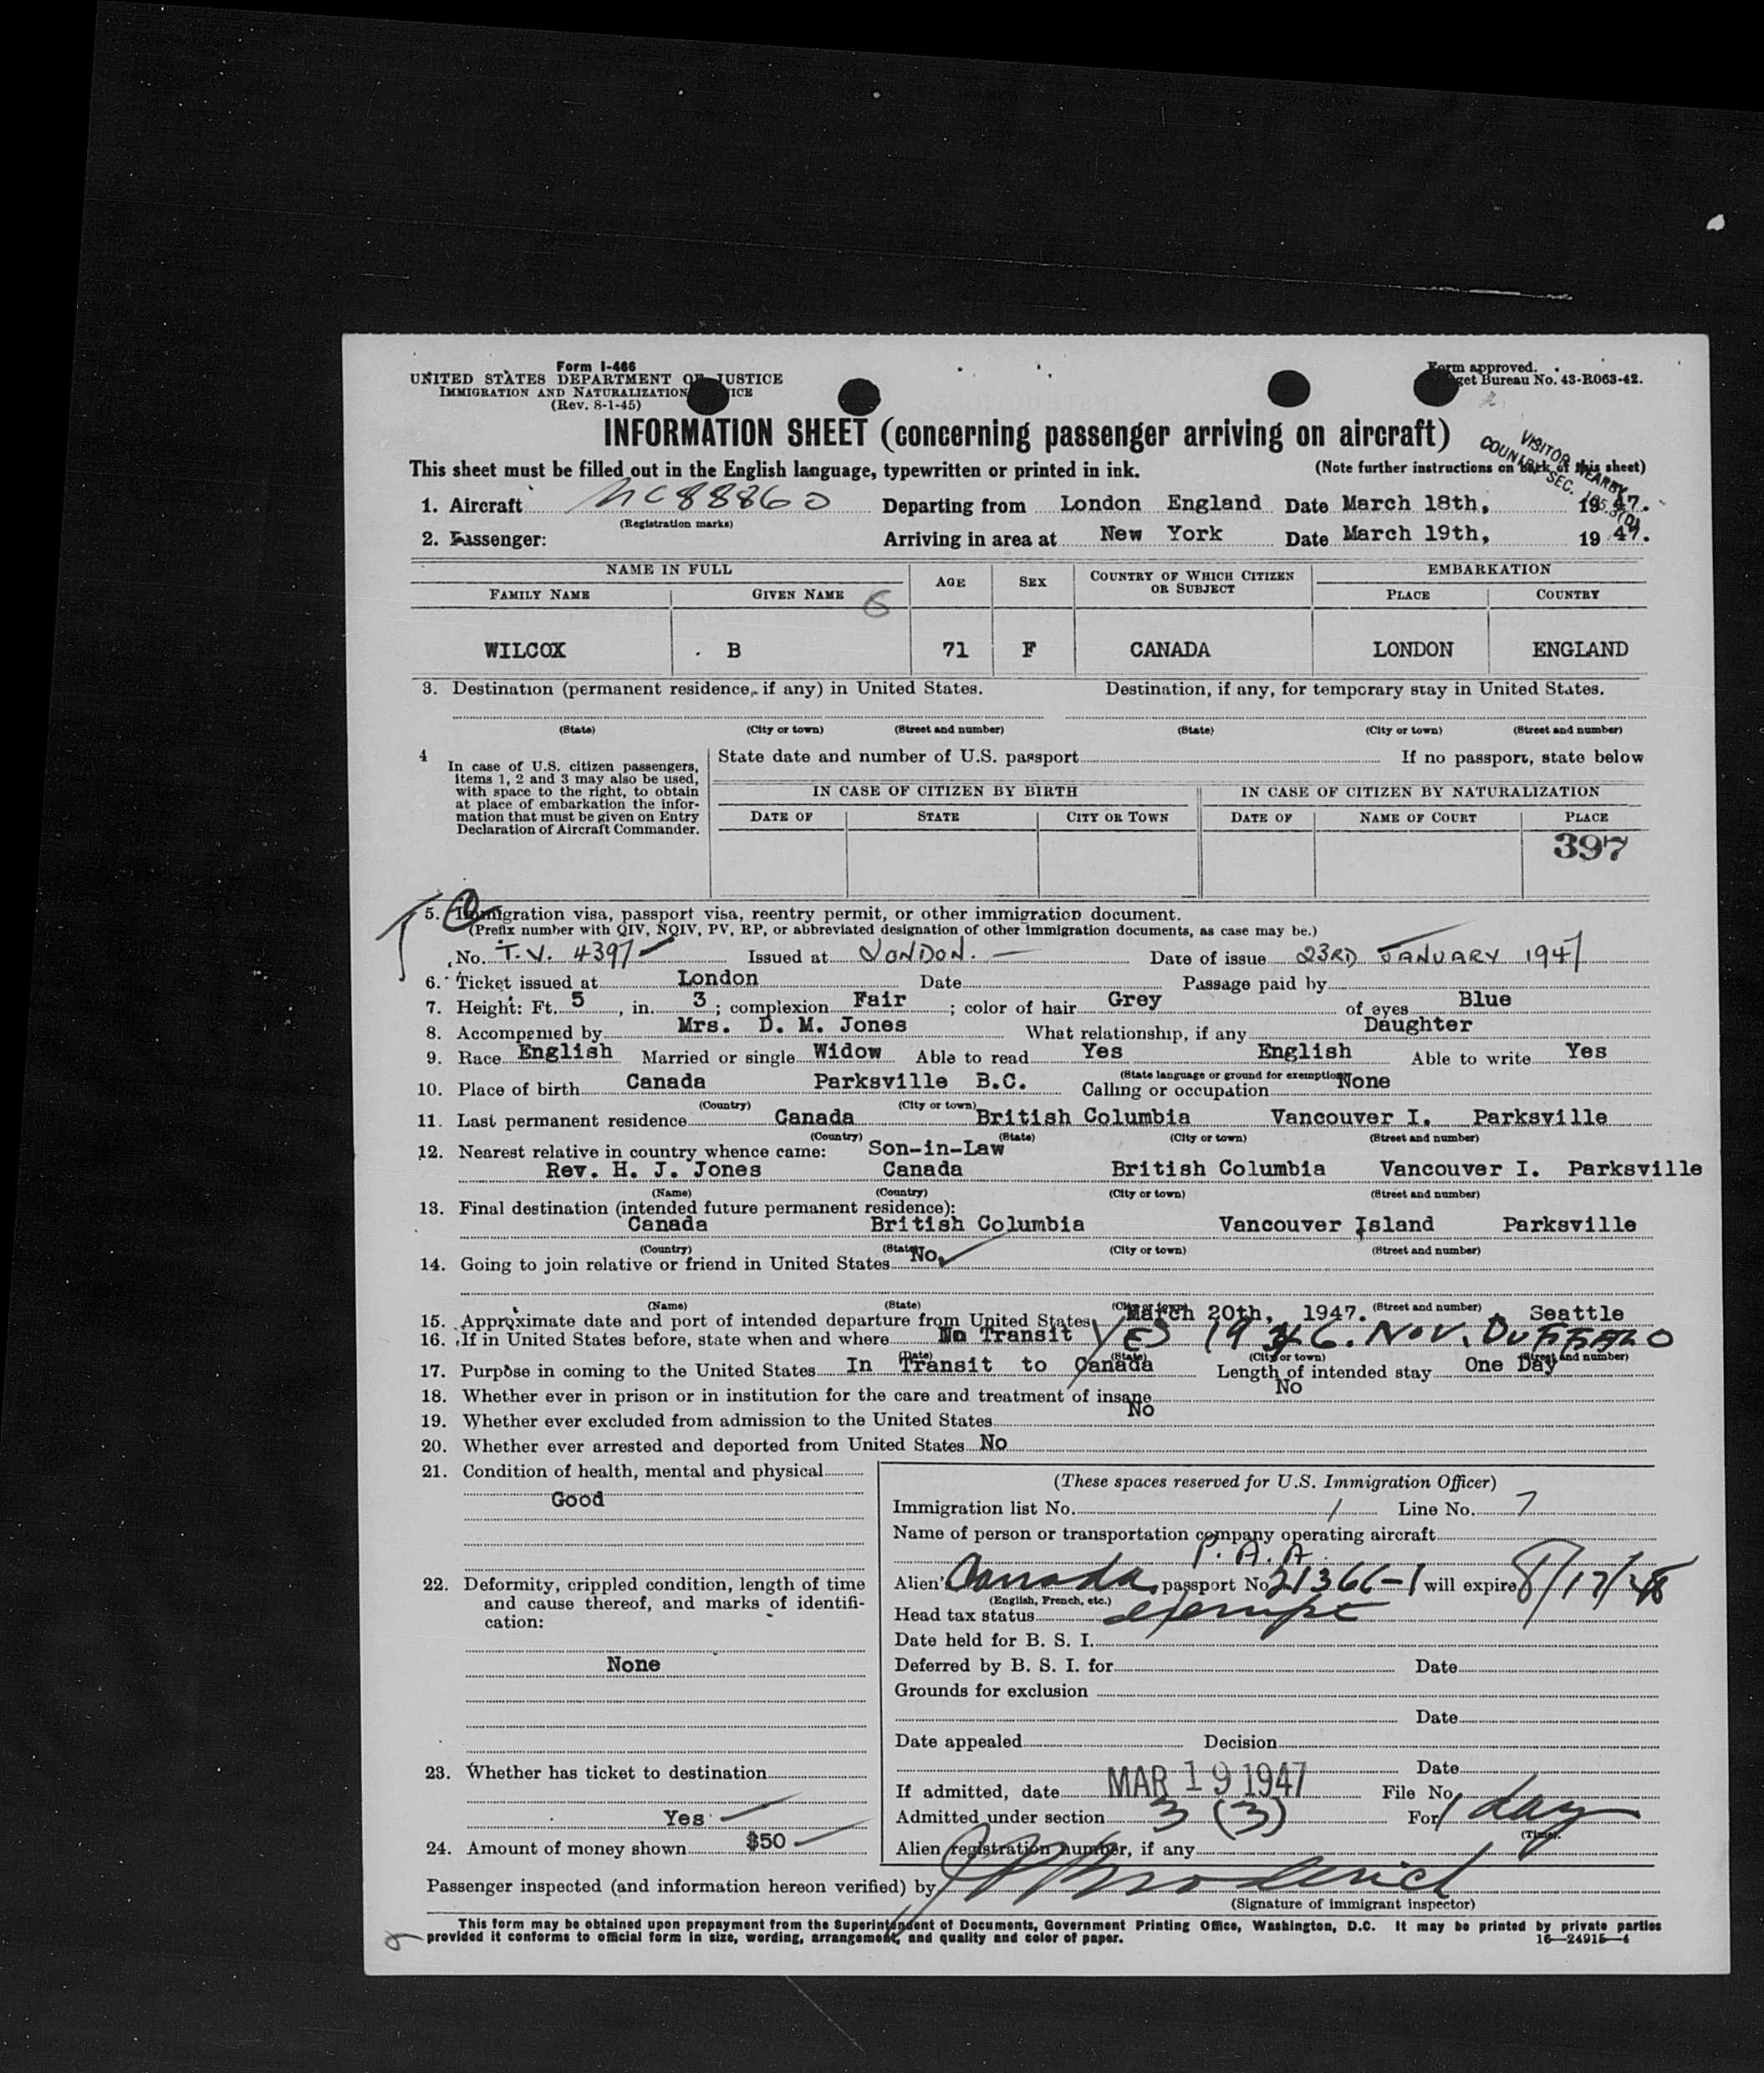 Form I-466
UNITED STATES DEPARTMENT OF JUSTICE
IMMIGRATION AND NATURALIZATION
(Rev. 8-1-45)
Form approved.
Budget Bureau No. 43-R063-42.
INFORMATION SHEET (concerning passenger arriving on aircraft)
VISITOR NEARBY
COUNTRY SEC.
This sheet must be filled out in the English language, typewritten or printed in ink. (Note further instructions on back of this sheet)
1. Aircraft NC88860 Departing from London England Date March 18th, 1947.
(Registration marks)
2. Passenger: Arriving in area at New York Date March 19th, 1947.
NAME IN FULL AGE SEX COUNTRY OF WHICH CITIZEN OR SUBJECT EMBARKATION
FAMILY NAME GIVEN NAME 6 PLACE COUNTRY
WILCOX . B 71 F CANADA LONDON ENGLAND
3. Destination (permanent residence, if any) in United States. Destination, if any, for temporary stay in United States.
(State) (City or town) (Street and number) (State) (City or town) (Street and number)
4 In case of U.S. citizen passengers, items 1, 2 and 3 may also be used, with space to the right, to obtain at place of embarkation the information that must be given on Entry Declaration of Aircraft Commander.
State date and number of U.S. passport If no passport, state below
IN CASE OF CITIZEN BY BIRTH IN CASE OF CITIZEN BY NATURALIZATION
DATE OF STATE CITY OR TOWN DATE OF NAME OF COURT PLACE
397
5. Immigration visa, passport visa, reentry permit, or other immigration document.
(Prefix number with QIV, NQIV, PV, RP, or abbreviated designation of other immigration documents, as case may be.)
No. T.V. 4397 Issued at LONDON. Date of issue 23RD JANUARY 1947
6. Ticket issued at London Date Passage paid by
7. Height: Ft. 5, in. 3; complexion Fair; color of hair Grey of eyes Blue
8. Accompanied by Mrs. D. M. Jones What relationship, if any Daughter
9. Race English Married or single Widow Able to read Yes English Able to write Yes
(State language or ground for exemption)
10. Place of birth Canada Parksville B.C. Calling or occupation None
(Country) (City or town)
11. Last permanent residence Canada British Columbia Vancouver I. Parksville
(Country) (State) (City or town) (Street and number)
12. Nearest relative in country whence came: Son-in-Law
Rev. H. J. Jones Canada British Columbia Vancouver I. Parksville
(Name) (Country) (City or town) (Street and number)
13. Final destination (intended future permanent residence):
Canada British Columbia Vancouver Island Parksville
(Country) (State) (City or town) (Street and number)
14. Going to join relative or friend in United States No.
(Name) (State) (City or town) (Street and number)
15. Approximate date and port of intended departure from United States March 20th, 1947. Seattle
16. If in United States before, state when and where No Transit YES 1946. NOV. BUFFALO
(Date) (State) (City or town) (Street and number)
17. Purpose in coming to the United States In Transit to Canada Length of intended stay One Day
18. Whether ever in prison or in institution for the care and treatment of insane No
19. Whether ever excluded from admission to the United States No
20. Whether ever arrested and deported from United States No
21. Condition of health, mental and physical
Good
22. Deformity, crippled condition, length of time and cause thereof, and marks of identification:
None
23. Whether has ticket to destination
Yes
24. Amount of money shown $50
(These spaces reserved for U.S. Immigration Officer)
Immigration list No. 1 Line No. 7
Name of person or transportation company operating aircraft
P.A.A.
Alien's Canada passport No. 21366-1 will expire 8/17/48
(English, French, etc.)
Head tax status exempt
Date held for B. S. I.
Deferred by B. S. I. for Date
Grounds for exclusion
Date
Date appealed Decision
Date
If admitted, date MAR 19 1947 File No.
Admitted under section 3 (3) For 1 day
(Time).
Alien registration number, if any
Passenger inspected (and information hereon verified) by
(Signature of immigrant inspector)
This form may be obtained upon prepayment from the Superintendent of Documents, Government Printing Office, Washington, D.C. It may be printed by private parties
provided it conforms to official form in size, wording, arrangement, and quality and color of paper. 16—24915-4